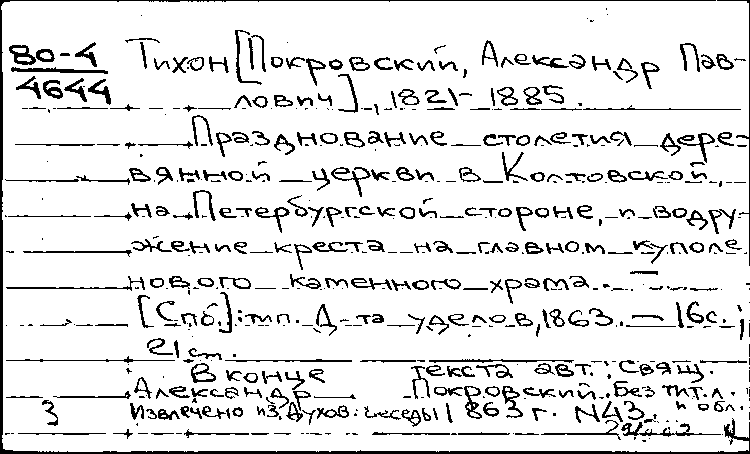 80-4
4644
Тихон [Покровский, Александр Пав-
лович], 1821-1885.
Празднование столетия дере-
вянной церкви в Колтовской,
на Петербургской стороне, и водру-
жение креста на главном куполе
нового каменного храма. —
[Спб.]: тип. Д-та уделов, 1863. — 16с.;
21 см.
В конце текста авт.: свящ.
Александр Покровский. Без тит. л.
и обл.
Извлечено из: Духов. беседы 1863 г. N43.
3